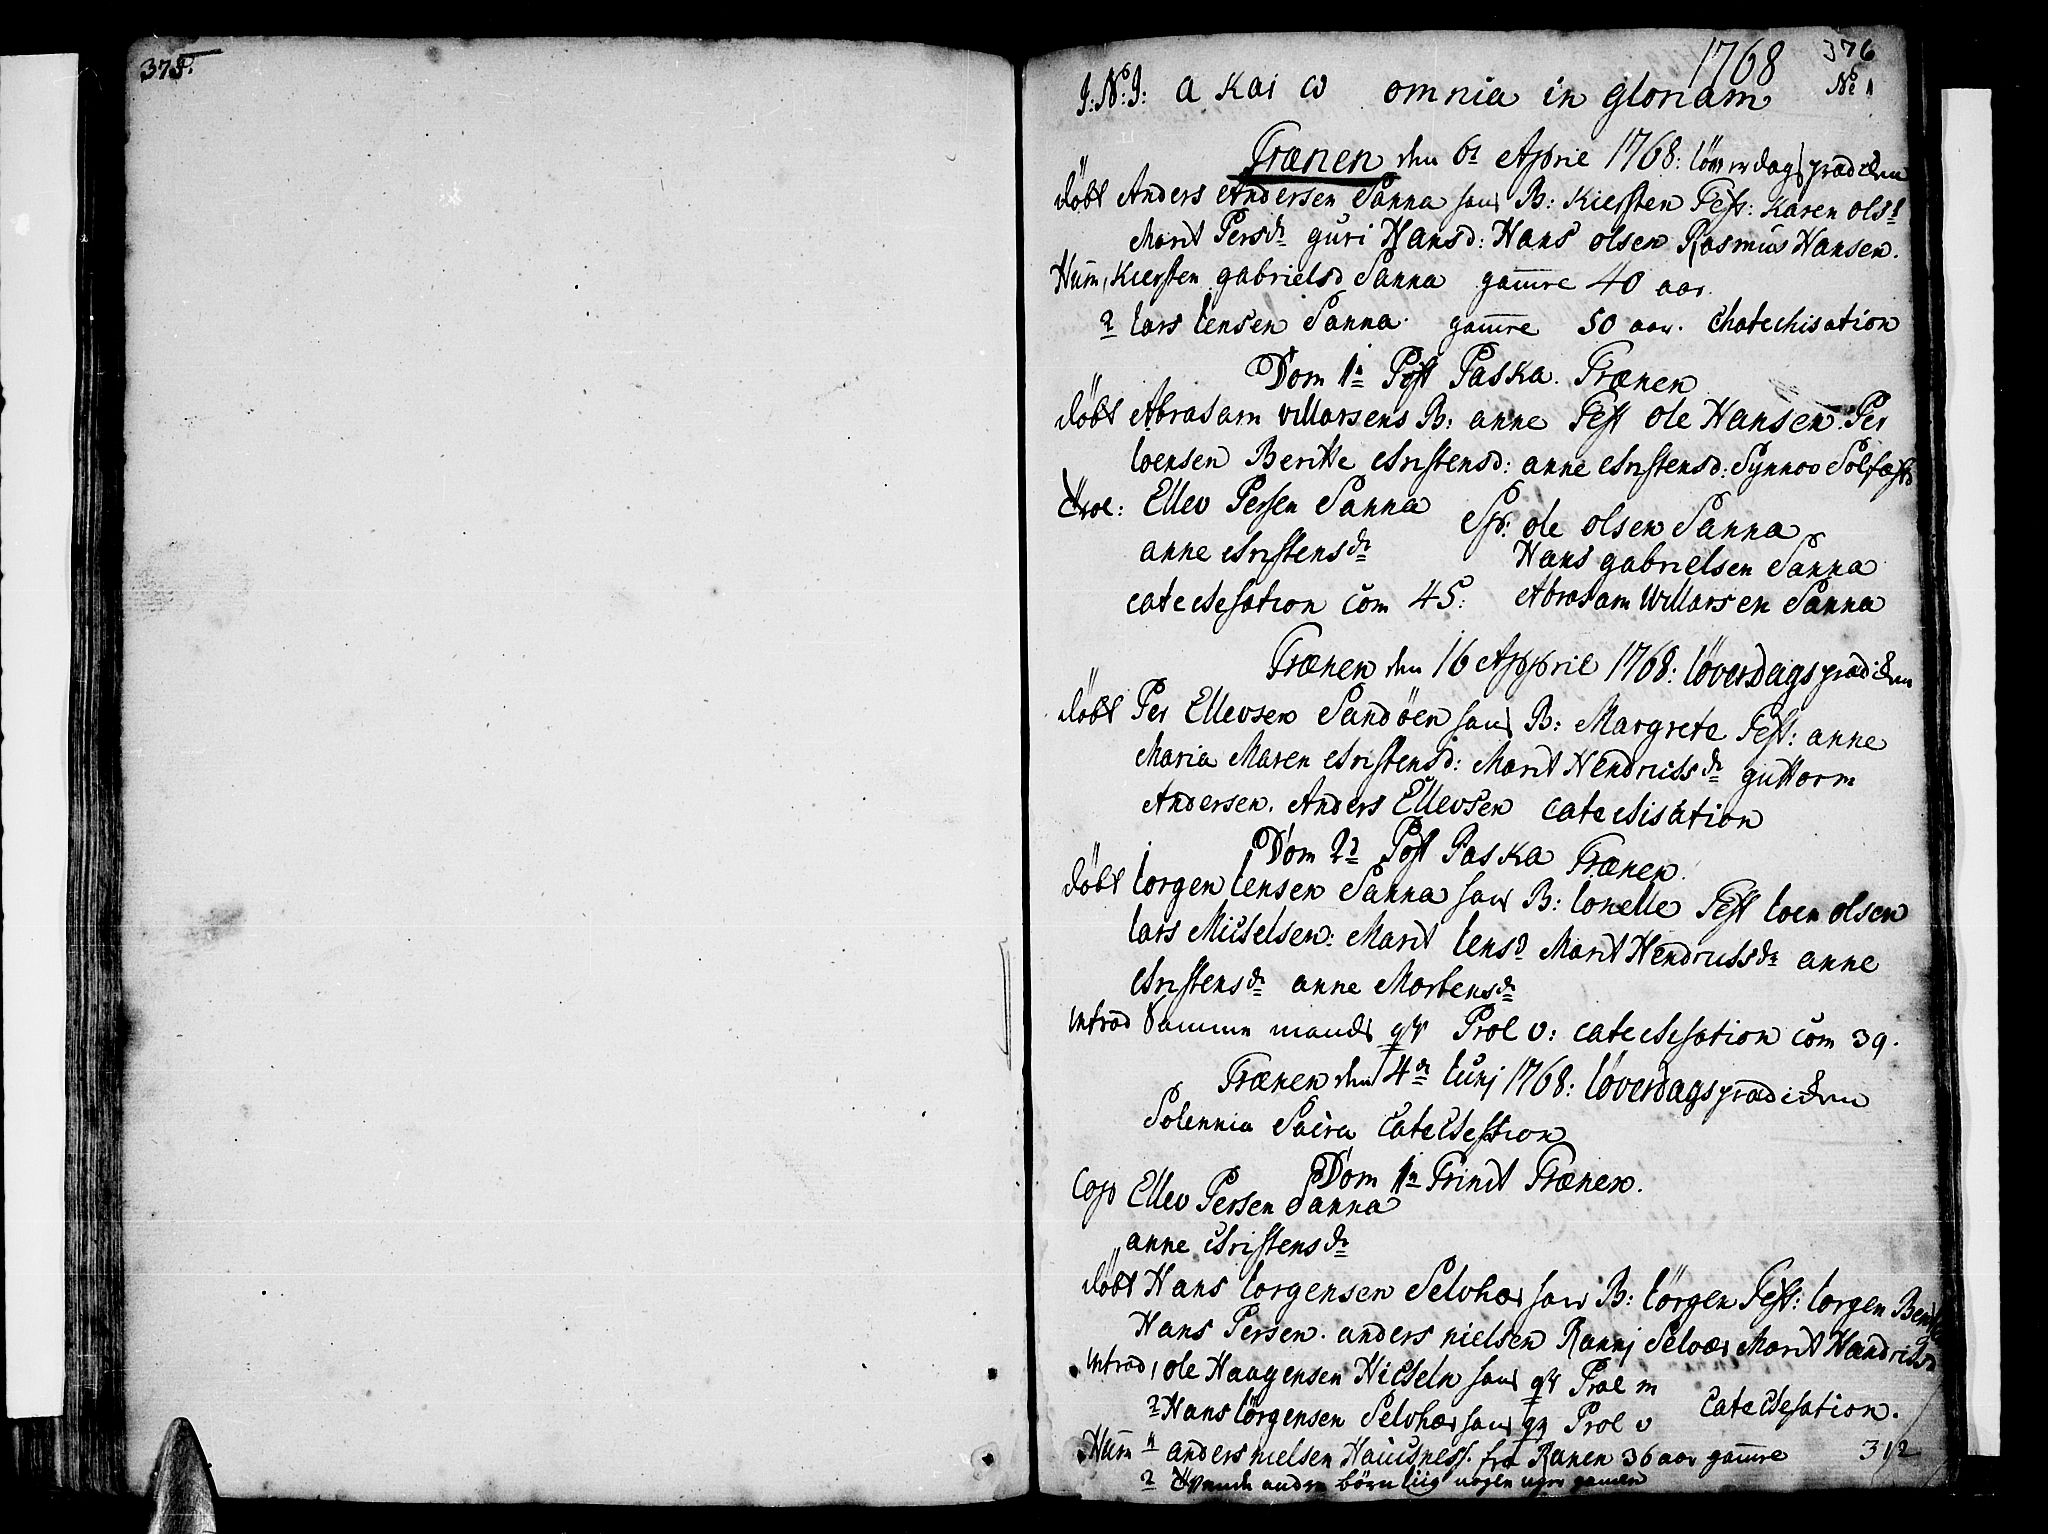 375.
1768 376
J: N: J: a kai ω omnia in gloriam No 1
Trænen den 6t April 1768: löverdagsprædiken
döbt Anders Andersen Sanna hans B: Kiersten Test: Karen olsd
Marit Persdr guri Hansd: Hans olsen Rasmus Hansen.
Hum, Kiersten gabrielsd Sanna gamle 40 aar.
2 lars Jensen Sanna. gamle 50 aar. Chatechisation
Dom 1a Post Paska. Trænen
döbt Abraham villarsens B: anne Test ole Hansen. Per
Joensen Beritte christensd: anne christensd: Synnov Solfæstd
Trol: Ellev Persen Sanna Sp: ole olsen Sanna
anne christensdr Hans gabrielsen Sanna
catechesation Com 45: Abraham Willarsen Sanna
Trænen den 16 April 1768: löverdagsprædiken
döbt Per Ellevsen Sandöen hans B: Margrete Test: anne
Maria Maren christensd: Marit Hendrichsdr guttorm
Andersen. Anders Ellevsen catechisation
Dom 2d Post Paska Trænen.
döbt Jorgen Jensen Sanna hans B: Jonelle Test Joen olsen
lars Michelsen: Marit Jensd Marit Hendrichsdr anne
christensdr anne Mortensdr
introd Samme mands qv Prol v: catechesation Com 39.
Trænen den 4de Junj 1768: löverdagsprædiken
Solennia Sacra Catechesation
Dom 1a Trinit Trænen.
Cop Ellev Persen Sanna
anne christensdr
döbt Hans Jorgensen Selvhær hans B: Jörgen Test: Jorgen
Hans Persen. anders nielsen Rannj Selvær Marit Handrichsd
introd 1 ole Haagensen hans qv Prol m
2 Hans Jörgensen Selvhær hans qv Prol v Catechesation.
Hum 1 anders nielsen fra Ranen 36 aar gamle 312
2 andre börn liig